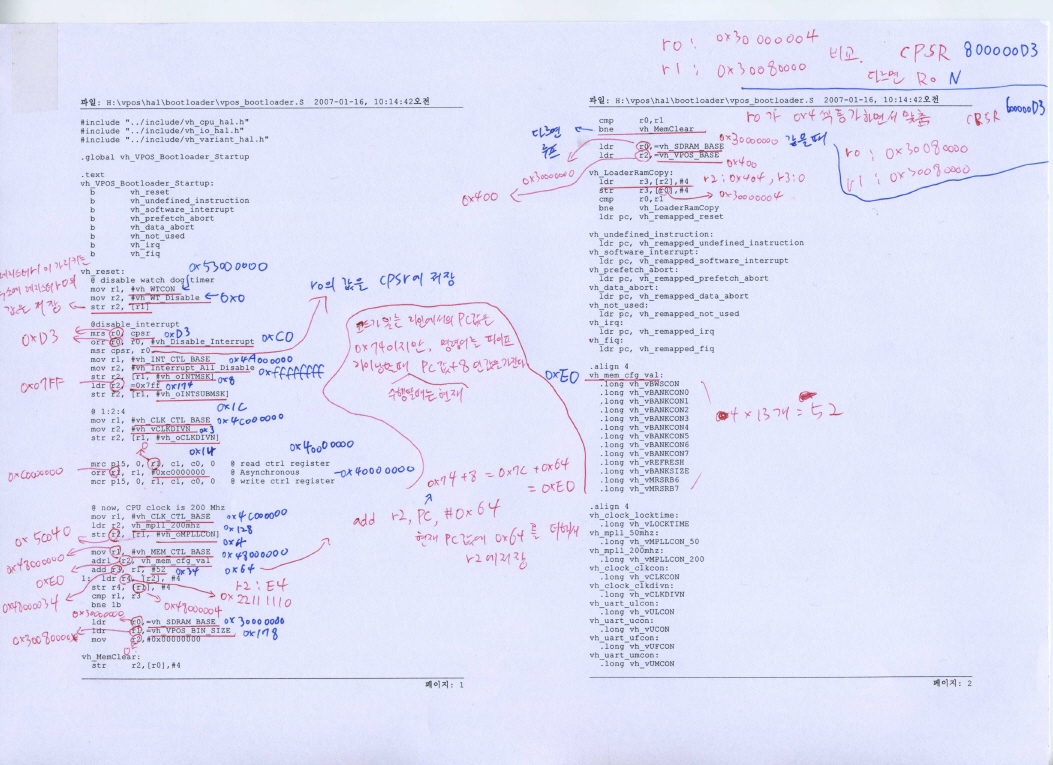 r0 : 0x30 000004
r1 : 0x3008 0000
비교
CPSR 800000D3
다르면 R0 N
파일: H:\vpos\hal\bootloader\vpos_bootloader.S 2007-01-16, 10:14:42오전
#include "../include/vh_cpu_hal.h"
#include "../include/vh_io_hal.h"
#include "../include/vh_variant_hal.h"
.global vh_VPOS_Bootloader_Startup
.text
vh_VPOS_Bootloader_Startup:
b vh_reset
b vh_undefined_instruction
b vh_software_interrupt
b vh_prefetch_abort
b vh_data_abort
b vh_not_used
b vh_irq
b vh_fiq
vh_reset:
0x53000000
@ disable watch dog timer
mov r1, #vh_WTCON
mov r2, #vh_WT_Disable ← 0x0
str r2, [r1]
값을 저장
r0의 값을 CPSR에 저장
@disable_interrupt
mrs r0, cpsr 0xD3
0xD3
orr r0, r0, #vh_Disable_Interrupt 0xC0
msr cpsr, r0
mov r1, #vh_INT_CTL_BASE 0x4A000000
mov r2, #vh_Interrupt_All_Disable 0xffffffff
str r2, [r1, #vh_oINTMSK] 0x8
0x07FF
ldr r2, =0x7ff 0x174
str r2, [r1, #vh_oINTSUBMSK]
0x1C
@ 1:2:4
mov r1, #vh_CLK_CTL_BASE 0x4C000000
mov r2, #vh_vCLKDIVN 0x3
str r2, [r1, #vh_oCLKDIVN]
0x14
0x40000000
0xC0000000
mrc p15, 0, r1, c1, c0, 0 @ read ctrl register
orr r1, r1, #0xc0000000 @ Asynchronous
0x40000000
mcr p15, 0, r1, c1, c0, 0 @ write ctrl register
@ now, CPU clock is 200 Mhz
mov r1, #vh_CLK_CTL_BASE 0x4C000000
ldr r2, vh_mpll_200mhz 0x128
0x5C040
str r2, [r1, #vh_oMPLLCON] 0x4
0x48000000
mov r1, #vh_MEM_CTL_BASE 0x48000000
adrl r2, vh_mem_cfg_val
0xE0
add r3, r1, #52 0x34 0x64
1: ldr r4, [r2], #4
r2 : E4
0x48000034
str r4, [r1], #4
0x22111110
cmp r1, r3
0x48000004
bne 1b
0x30000000
ldr r0, =vh_SDRAM_BASE 0x30000000
0x30080000
ldr r1, =vh_VPOS_BIN_SIZE 0x178
mov r2, #0x00000000
0
vh_MemClear:
str r2,[r0],#4
페이지: 1
코드가 있는 라인에서의 PC값은
0x74이지만, 명령어는 파이프
수행할때는 현재
0x74+8 = 0x7C + 0x64
= 0xE0
add r2, PC, #0x64
현재 PC값에 0x64를 더해서
r2에 저장
파일: H:\vpos\hal\bootloader\vpos_bootloader.S 2007-01-16, 10:14:42오전
r0가 0x4씩 증가하면서 맞춤
CPSR 600000D3
cmp r0,r1
다르면
루프
bne vh_MemClear
0x30000000 같을때
ldr r0,=vh_SDRAM_BASE
ldr r2,=vh_VPOS_BASE
0x400
r0 : 0x30080000
r1 : 0x30080000
0x30000000
0x400
vh_LoaderRamCopy:
ldr r3,[r2],#4
r2:0x404, r3:0
str r3,[r0],#4
0x30000004
cmp r0,r1
bne vh_LoaderRamCopy
ldr pc, vh_remapped_reset
vh_undefined_instruction:
ldr pc, vh_remapped_undefined_instruction
vh_software_interrupt:
ldr pc, vh_remapped_software_interrupt
vh_prefetch_abort:
ldr pc, vh_remapped_prefetch_abort
vh_data_abort:
ldr pc, vh_remapped_data_abort
vh_not_used:
ldr pc, vh_remapped_not_used
vh_irq:
ldr pc, vh_remapped_irq
vh_fiq:
ldr pc, vh_remapped_fiq
.align 4
0xE0
vh_mem_cfg_val:
.long vh_vBWSCON
.long vh_vBANKCON0
.long vh_vBANKCON1
.long vh_vBANKCON2
.long vh_vBANKCON3
.long vh_vBANKCON4
.long vh_vBANKCON5
.long vh_vBANKCON6
.long vh_vBANKCON7
.long vh_vREFRESH
.long vh_vBANKSIZE
.long vh_vMRSRB6
.long vh_vMRSRB7
4 x 13개 = 52
.align 4
vh_clock_locktime:
.long vh_vLOCKTIME
vh_mpll_50mhz:
.long vh_vMPLLCON_50
vh_mpll_200mhz:
.long vh_vMPLLCON_200
vh_clock_clkcon:
.long vh_vCLKCON
vh_clock_clkdivn:
.long vh_vCLKDIVN
vh_uart_ulcon:
.long vh_vULCON
vh_uart_ucon:
.long vh_vUCON
vh_uart_ufcon:
.long vh_vUFCON
vh_uart_umcon:
.long vh_vUMCON
페이지: 2